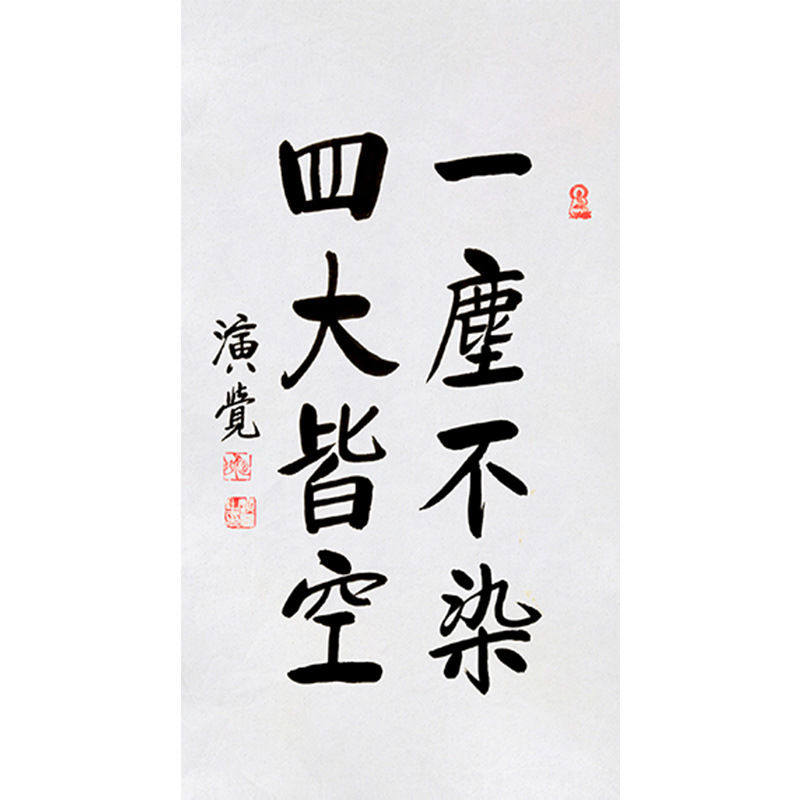 一塵不染
四大皆空
演覺